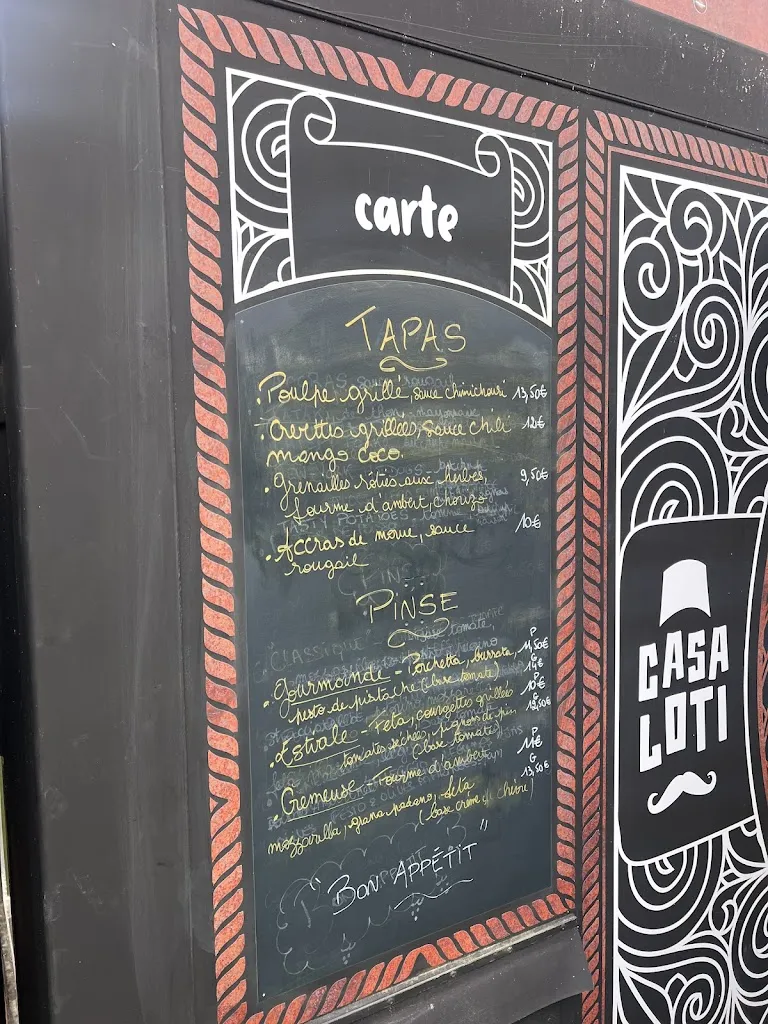 carte
TAPAS
• Poulpe grillé, sauce chimichouri 13,50€
• Crevettes grillées, sauce chili 12€
mango coco.
• Grenailles rôties aux herbes, 9,50€
fourme d'ambert, chorizo
• Accras de morue, sauce 10€
rougail
PINSE
• Gourmande - Porchetta, burrata, P 11,50€
pesto de pistache (base tomate) G 14€
• Estivale - Feta, courgettes grillées P 10€
tomates séchées, pignons de pin G 12,50€
(base tomate)
• Cremeuse - Fourme d'ambert, P 11€
mozzarella, grana padano, feta G 13,50€
(base crème de chèvre)
"BON APPÉTIT"
CASA
LOTI